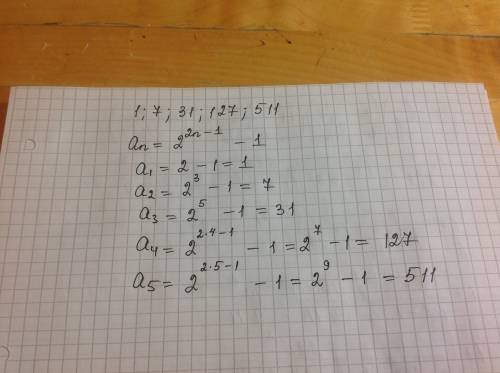 1; 7; 31; 127; 511
aₙ = 2²ⁿ⁻¹ - 1
a₁ = 2 - 1 = 1
a₂ = 2³ - 1 = 7
a₃ = 2⁵ - 1 = 31
a₄ = 2^{2·4-1} - 1 = 2⁷ - 1 = 127
a₅ = 2^{2·5-1} - 1 = 2⁹ - 1 = 511